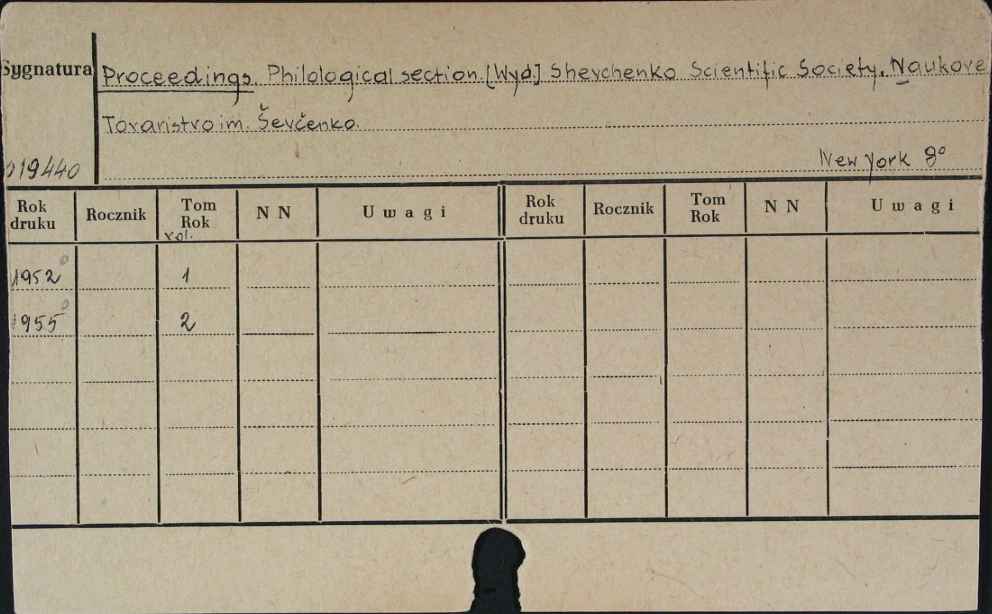 Sygnatura Proceedings. Philological section. [Wyd] Shevchenko Scientific Society. Naukove
Tovaristvo im. Ševčenko.
019440 New York 8°
Rok druku Rocznik Tom Rok N N Uwagi Rok druku Rocznik Tom Rok N N Uwagi
vol.
1952 1
1955 2